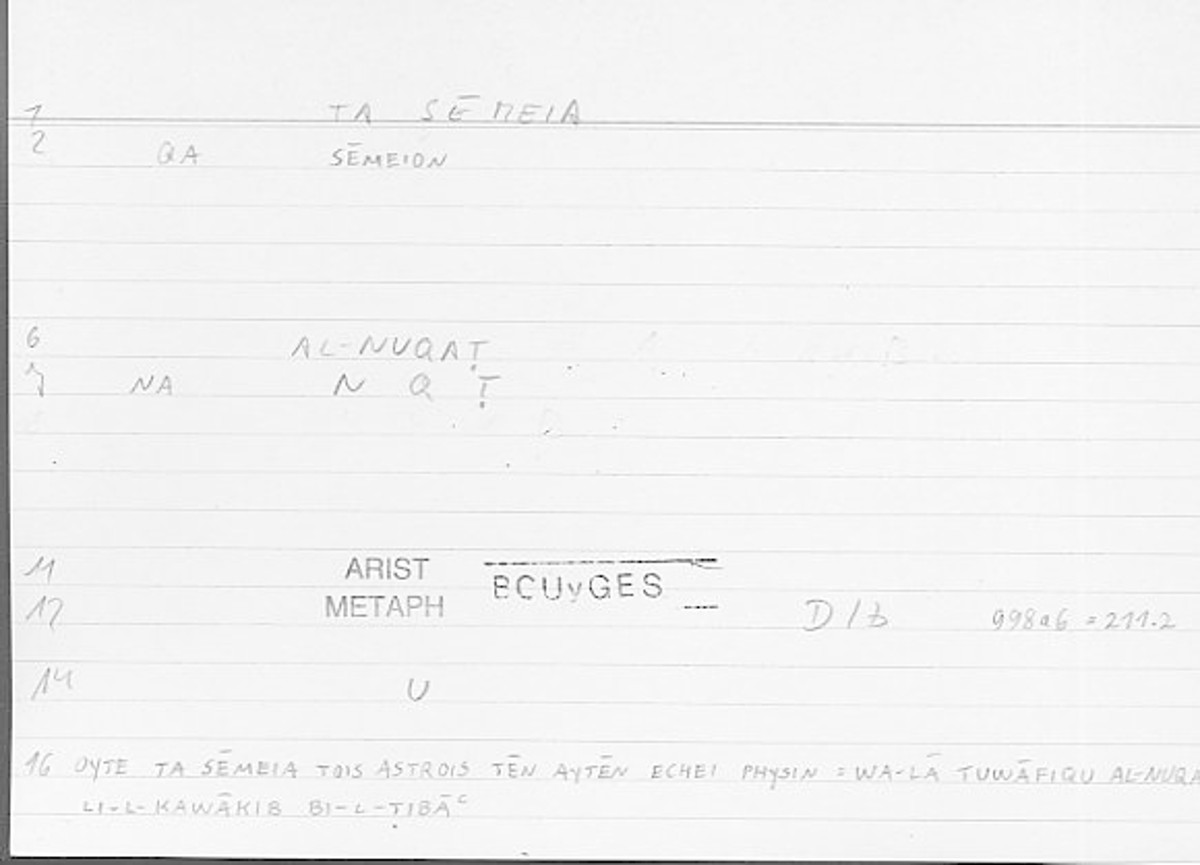 1 TA SĒMEIA
2 QA SĒMEION
6 AL-NUQAṬ
7 NA N Q Ṭ
11 ARIST BCUvGES
12 METAPH D/b 998a6 = 211.2
14 U
16 OYTE TA SĒMEIA TOIS ASTROIS TĒN AYTĒN ECHEI PHYSIN = WA-LĀ TUWĀFIQU AL-NUQA
LI-L-KAWĀKIB BI-L-ṬIBĀʿ